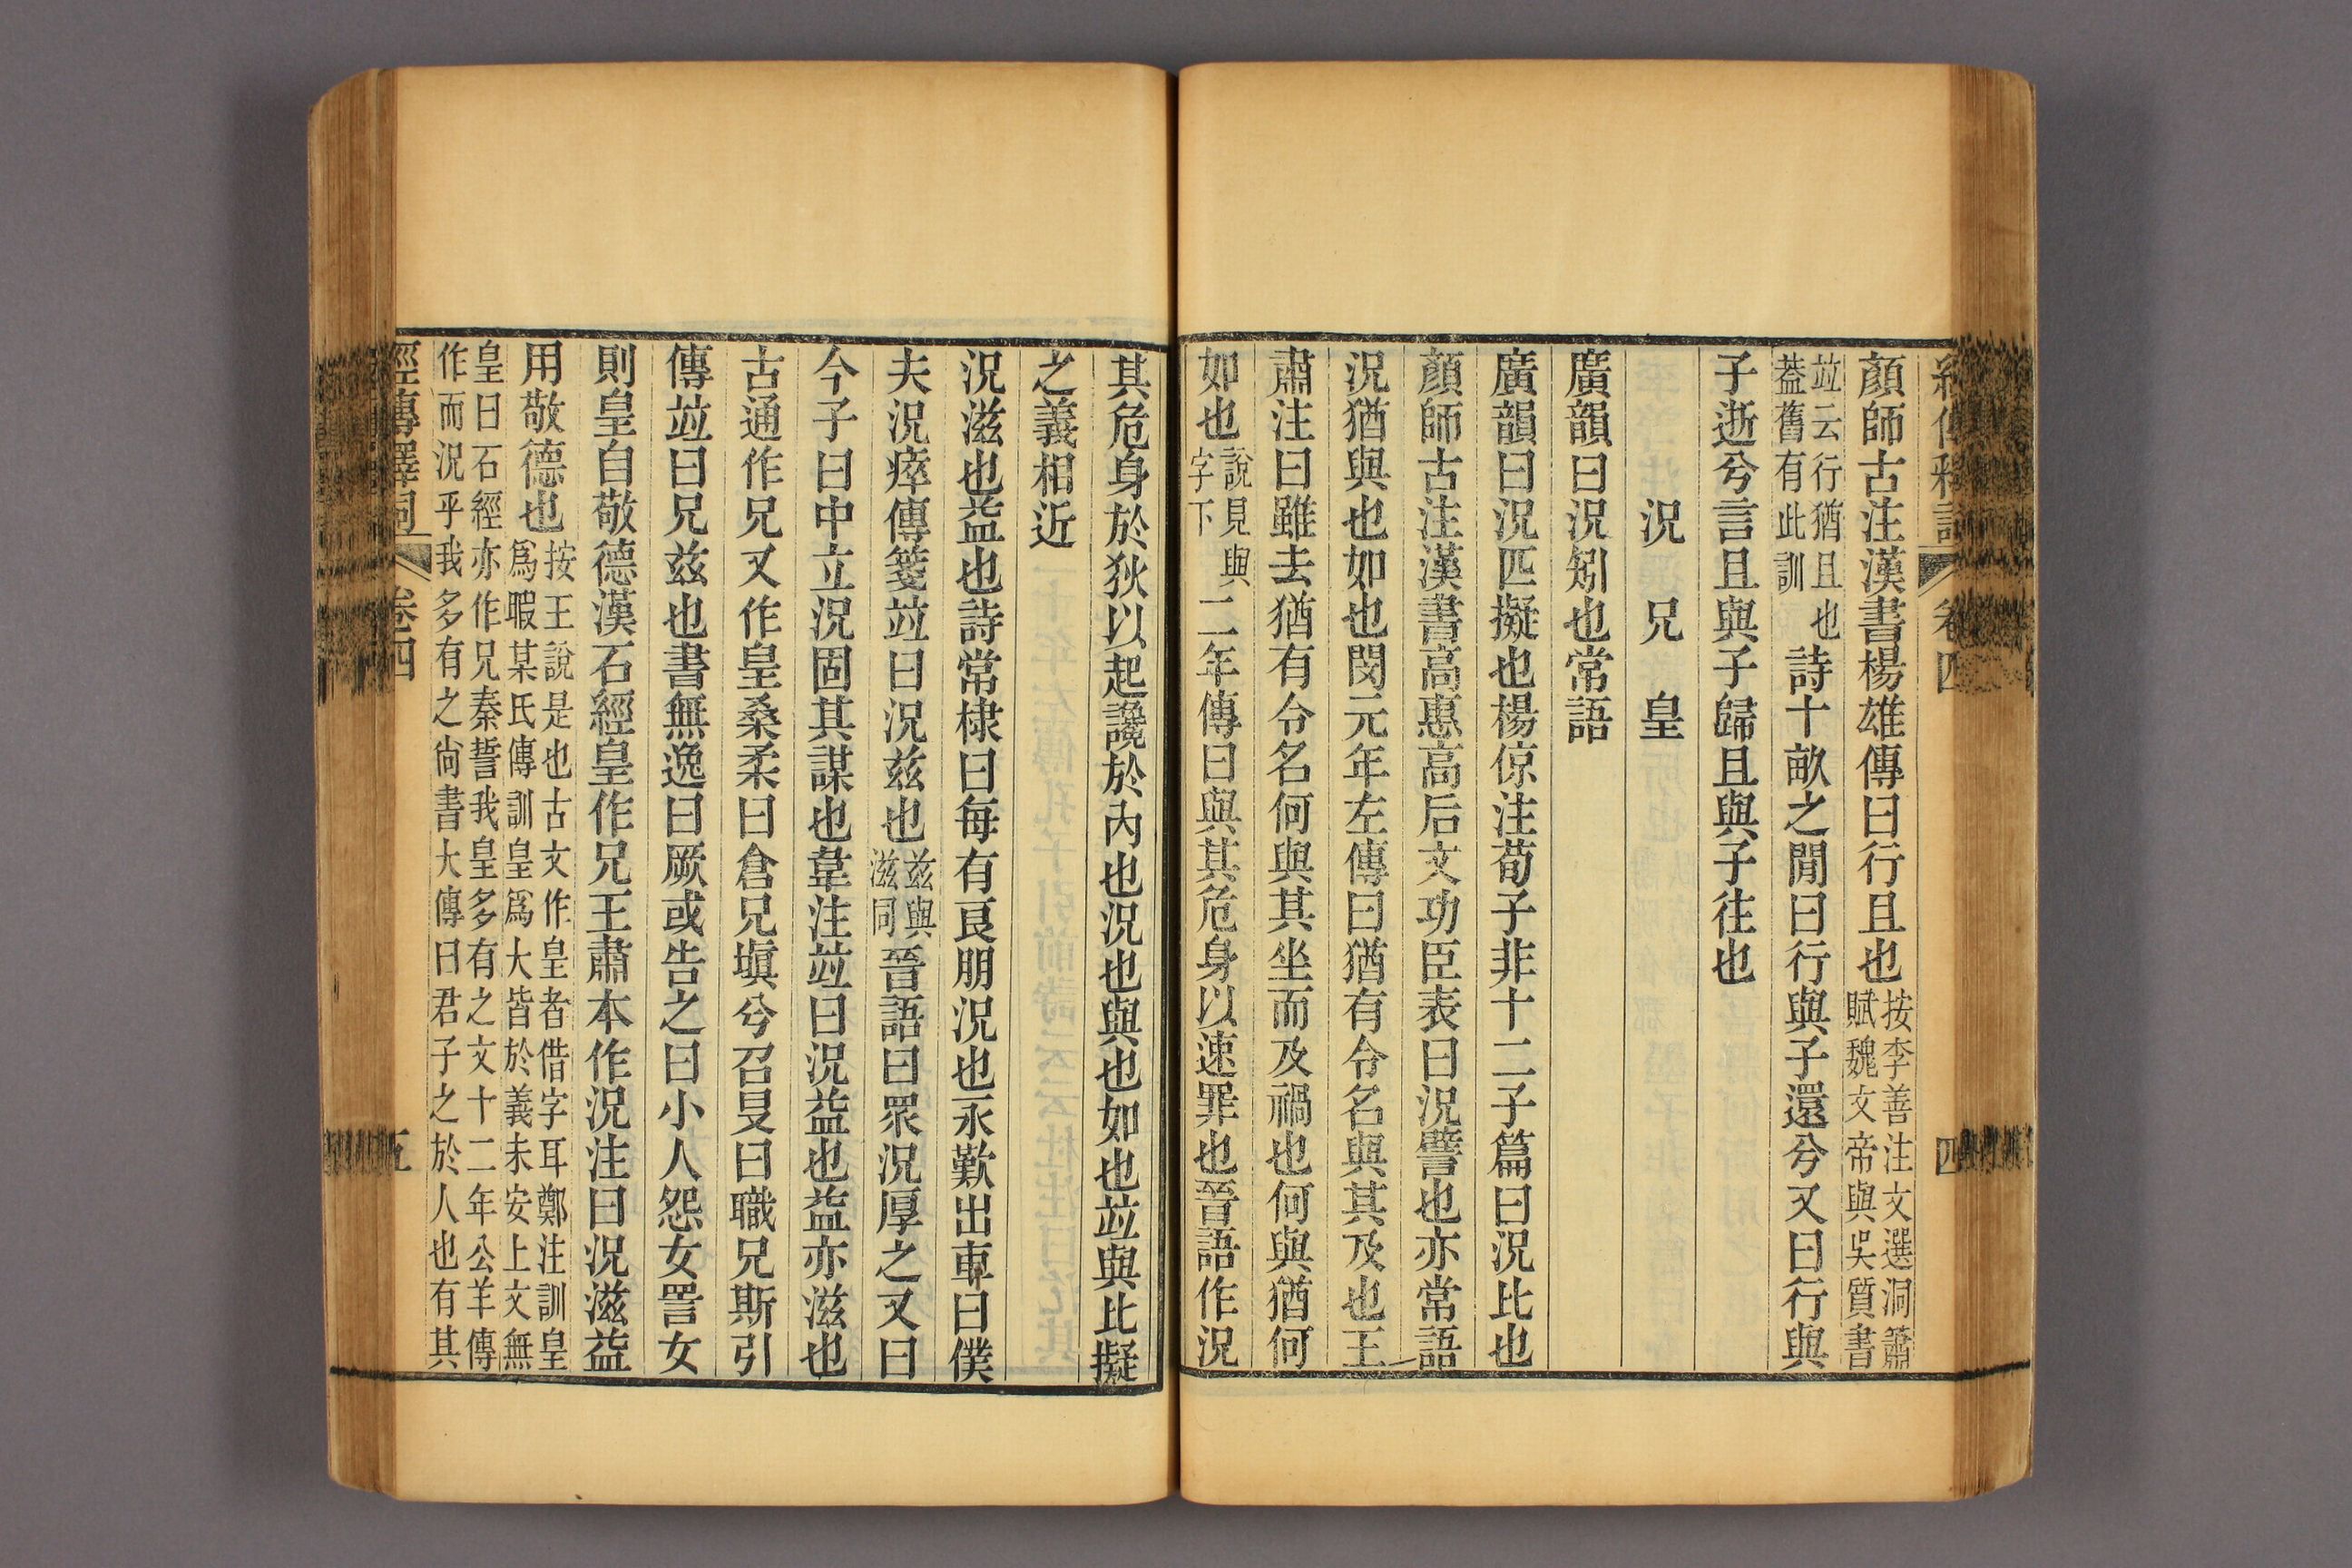 經傳釋詞 卷四 四
顏師古注漢書楊雄傳曰行且也按李善注文選洞簫賦魏文帝與吳質書
竝云行猶且也葢舊有此訓詩十畝之閒曰行與子還兮又曰行與
子逝兮言且與子歸且與子往也
況 兄 皇
廣韻曰況矧也常語
廣韻曰況匹擬也楊倞注荀子非十二子篇曰況比也
顏師古注漢書高惠高后文功臣表曰況譬也亦常語
況猶與也如也閔元年左傳曰猶有令名與其及也王
肅注曰雖去猶有令名何與其坐而及禍也何與猶何
如也說見與字下二年傳曰與其危身以速罪也晉語作況
其危身於狄以起讒於內也況也與也如也竝與比擬
之義相近
況滋也益也詩常棣曰每有良朋況也永歎出車曰僕
夫況瘁傳箋竝曰況兹也兹與滋同晉語曰眾況厚之又曰
今子曰中立況固其謀也韋注竝曰況益也益亦滋也
古通作兄又作皇桑柔曰倉兄塡兮召旻曰職兄斯引
傳竝曰兄兹也書無逸曰厥或告之曰小人怨女詈女
則皇自敬德漢石經皇作兄王肅本作況注曰況滋益
用敬德也按王說是也古文作皇者借字耳鄭注訓皇爲暇某氏傳訓皇爲大皆於義未安上文無
皇曰石經亦作兄秦誓我皇多有之文十二年公羊傳作而況乎我多有之尙書大傳曰君子之於人也有其
經傳釋詞 卷四 五